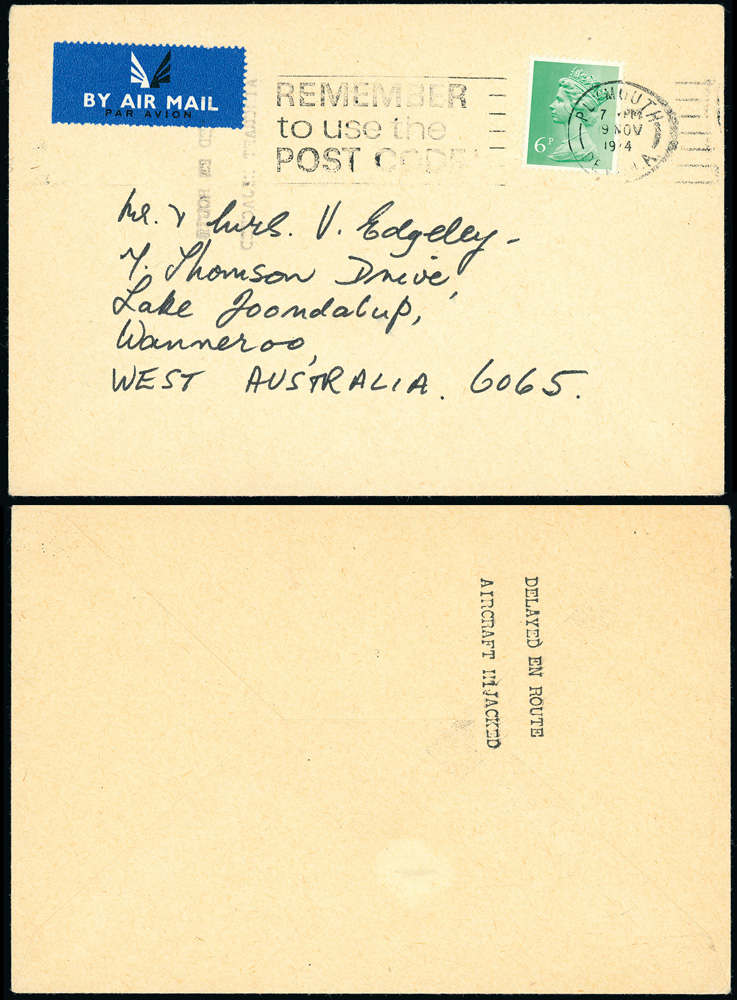 BY AIR MAIL
PAR AVION
REMEMBER
to use the
POST CODE
6P
PLYMOUTH
7 PM
9 NOV
1974
Mr. & Mrs. V. Edgeley -
7. Thomson Drive,
Lake Joondalup,
Wanneroo,
WEST AUSTRALIA. 6065.
DELAYED EN ROUTE
AIRCRAFT HIJACKED